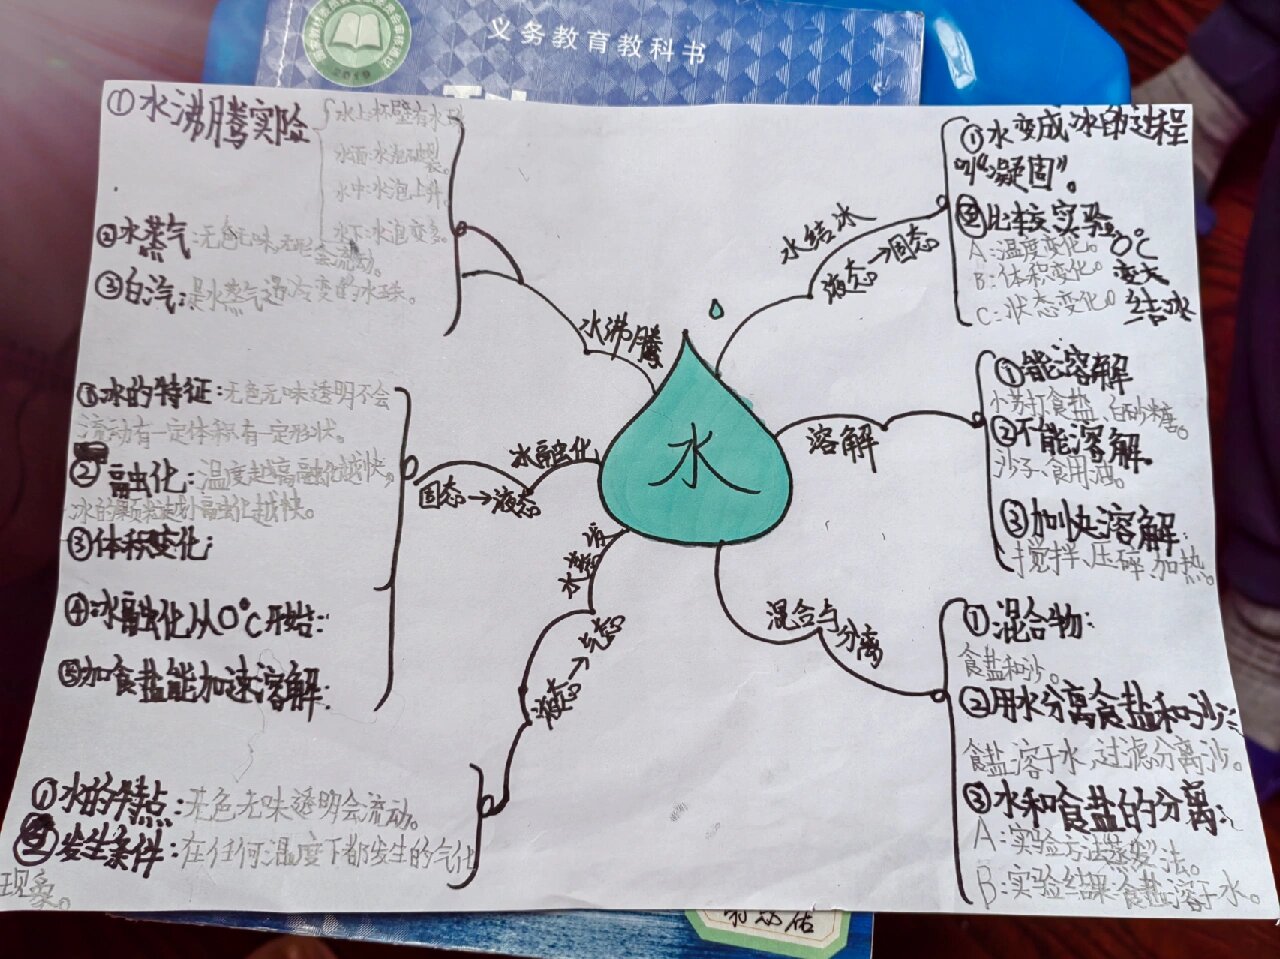 义务教育教科书
①水沸腾实验
水上:杯壁有水珠
水面:水泡破裂。
水中:水泡上升。
水下:水泡变多。
②水蒸气:无色无味无形会流动。
③白汽:是水蒸气遇冷变的水珠。
水沸腾
①水变成冰的过程
叫“凝固”。
②比较实验
A:温度变化。0℃
B:体积变化。变大
C:状态变化。结冰
水结冰
液态→固态
①冰的特征:无色无味透明不会
流动有一定体积有一定形状。
②融化:温度越高融化越快。
冰的颗粒越小融化越快。
③体积变化:
④冰融化从0℃开始:
⑤加食盐能加速溶解:
冰融化
固态→液态
水
溶解
①能溶解
小苏打食盐、白砂糖。
②不能溶解
沙子、食用油。
③加快溶解
搅拌、压碎、加热。
水蒸发
液态→气态
①水的特点:无色无味透明会流动。
②发生条件:在任何温度下都发生的气化
现象。
混合与
分离
①混合物:
食盐和沙。
②用水分离食盐和沙:
食盐溶于水,过滤分离沙。
③水和食盐的分离:
A:实验方法“蒸发”法。
B:实验结果:食盐溶于水。